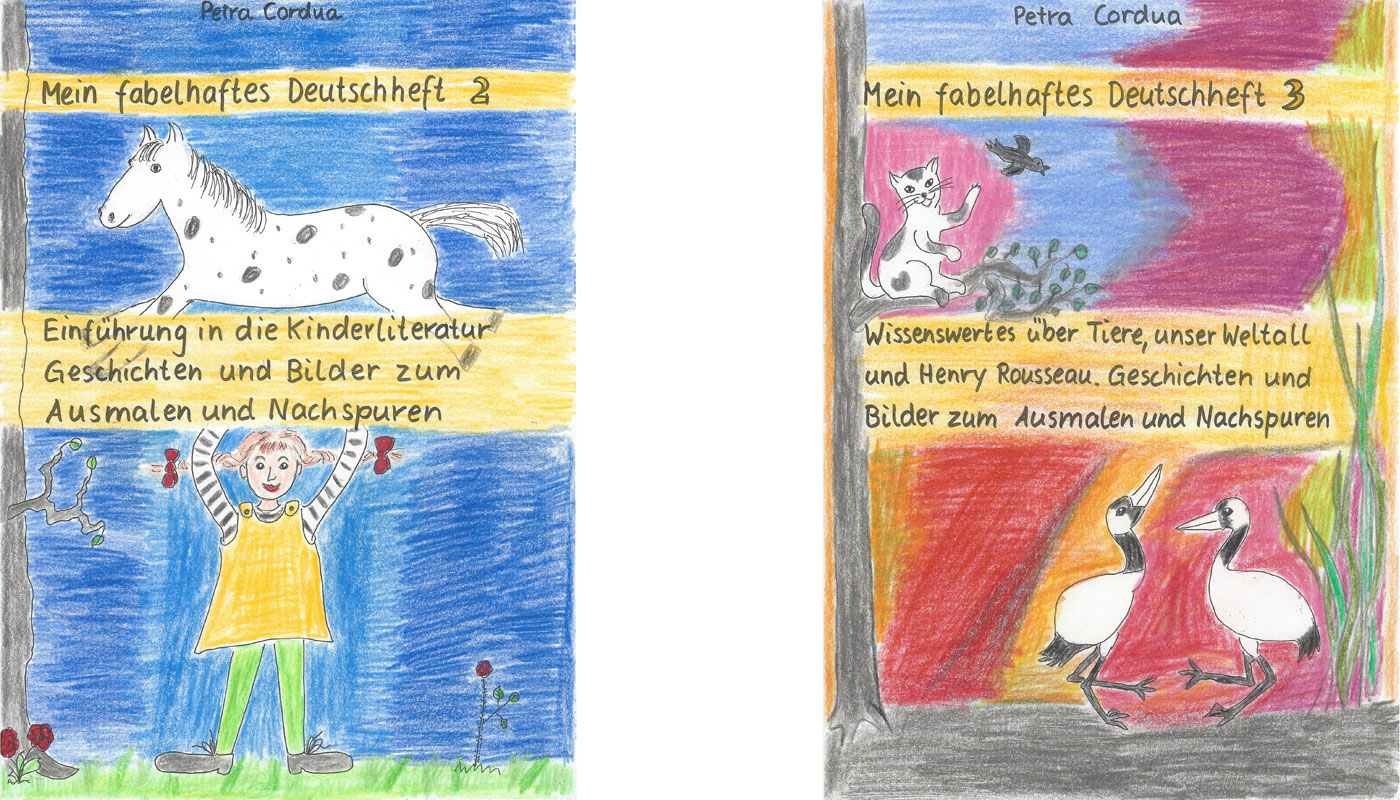 Petra Cordua
Mein fabelhaftes Deutschheft 2
Einführung in die Kinderliteratur
Geschichten und Bilder zum
Ausmalen und Nachspuren
Petra Cordua
Mein fabelhaftes Deutschheft 3
Wissenswertes über Tiere, unser Weltall
und Henry Rousseau. Geschichten und
Bilder zum Ausmalen und Nachspuren